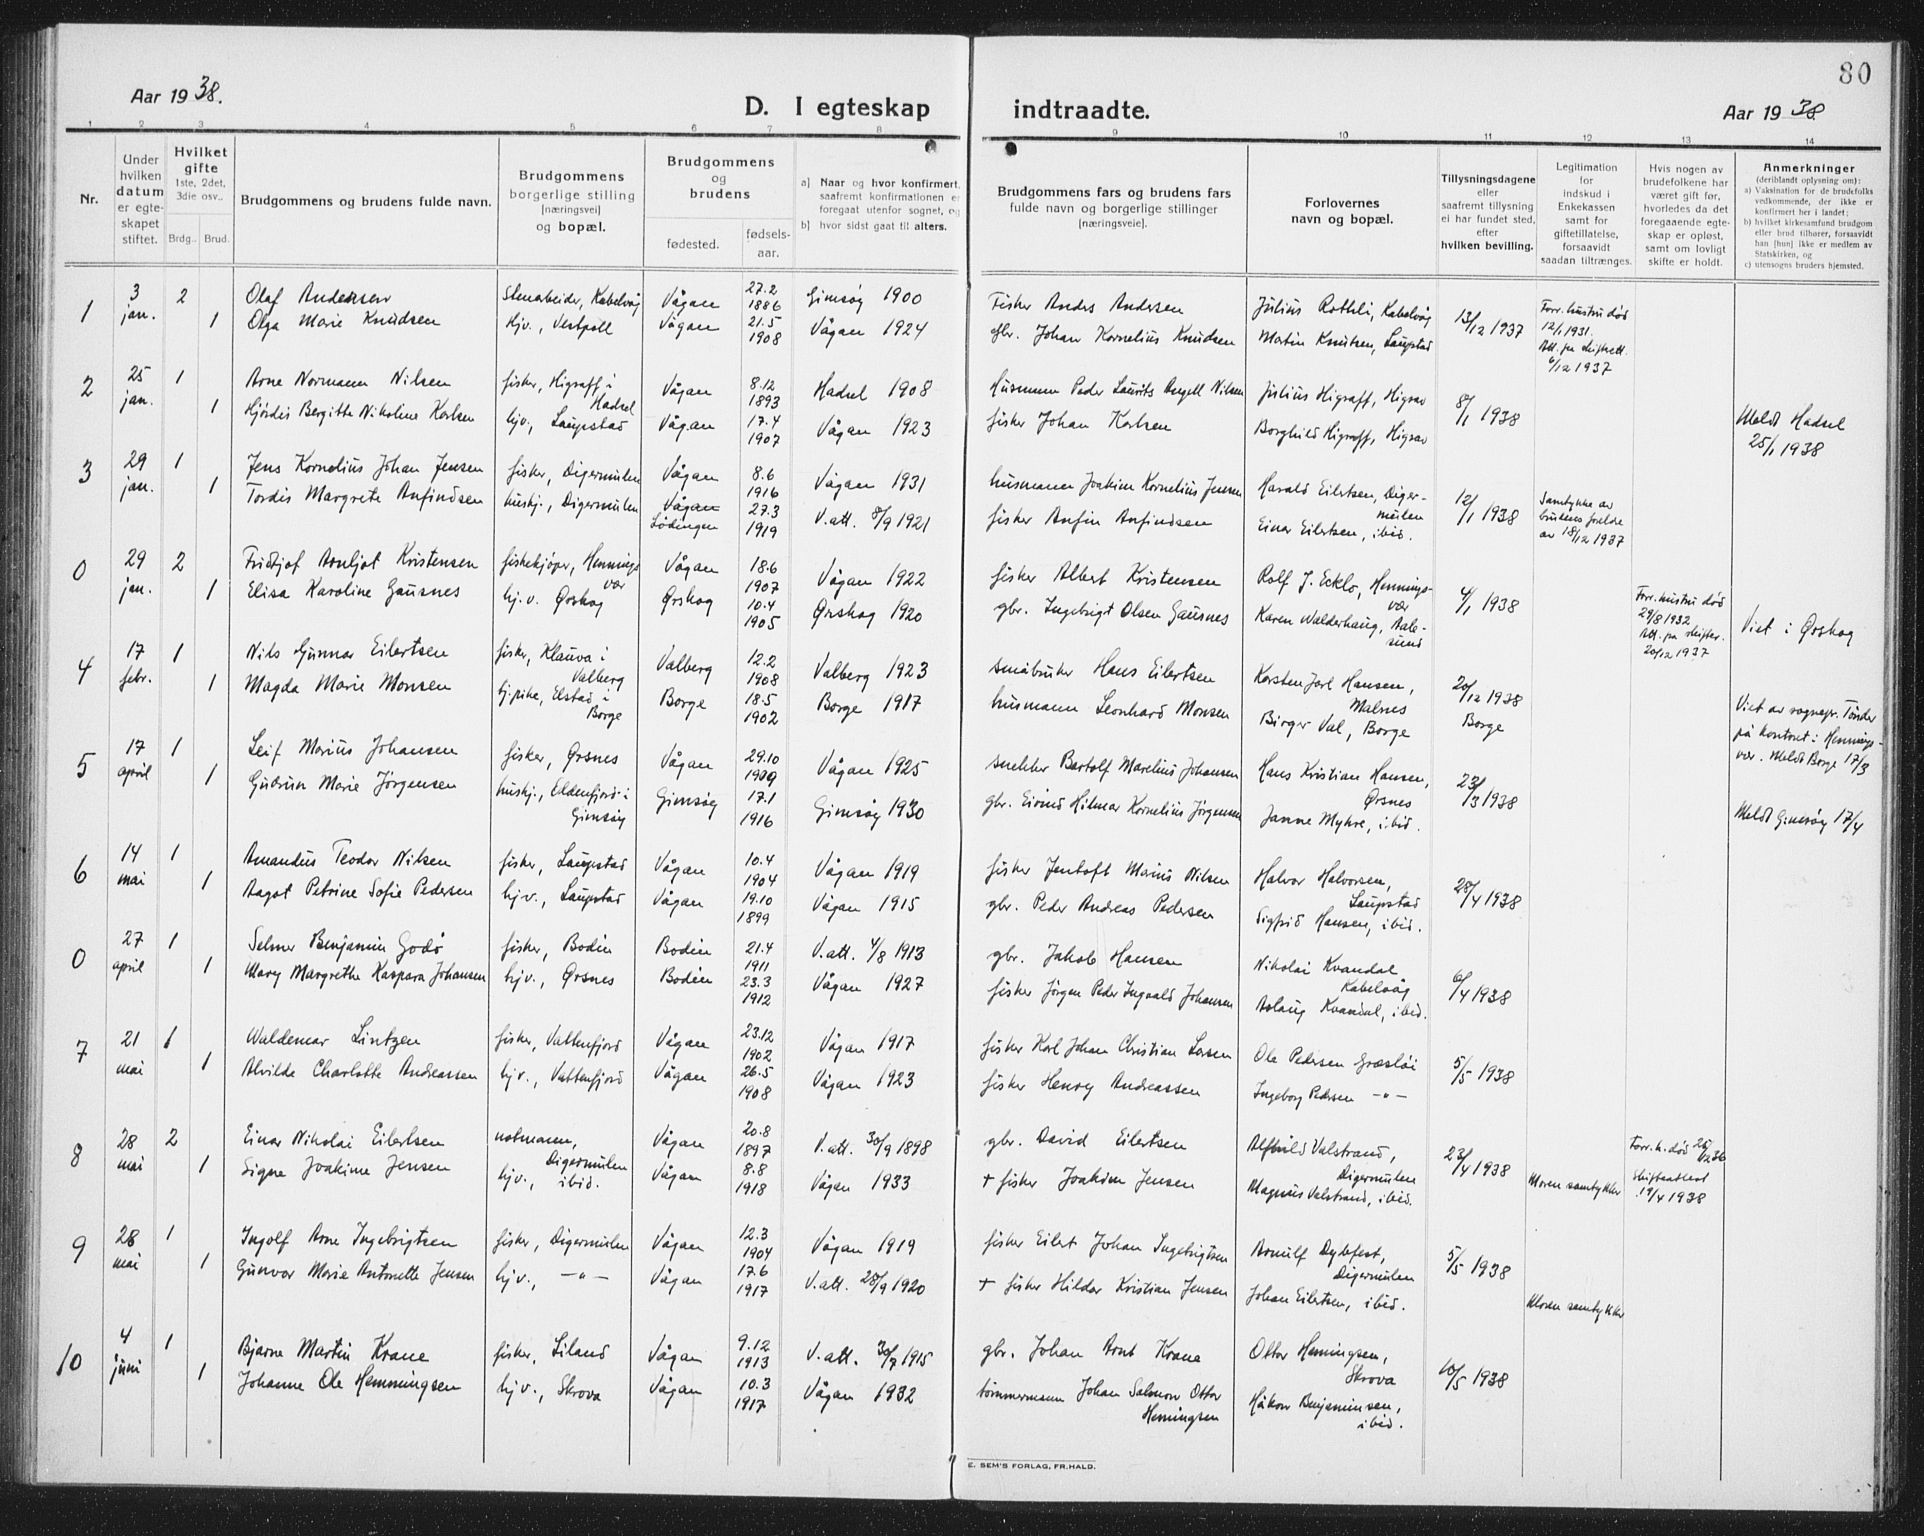 80
Aar 1938.
D. I egteskap indtraadte.
Aar 1938
1 2 3 4 5 6 7 8 9 10 11 12 13 14
Nr.
Under hvilken datum er egteskapet stiftet.
Hvilket gifte 1ste, 2det, 3die osv..
Brdg.. Brud.
Brudgommens og brudens fulde navn.
Brudgommens borgerlige stilling [næringsvei] og bopæl.
Brudgommens og brudens
fødested. fødselsaar.
a) Naar og hvor konfirmert, saafremt konfirmationen er foregaat utenfor sognet, og
b) hvor sidst gaat til alters.
Brudgommens fars og brudens fars fulde navn og borgerlige stillinger [næringsveie].
Forlovernes navn og bopæl.
Tillysningsdagene eller saafremt tillysning ei har fundet sted, efter hvilken bevilling.
Legitimation for indskud i Enkekassen samt for giftetillatelse, forsaavidt saadan tiltrænges.
Hvis nogen av brudefolkene har været gift før, hvorledes da det foregaaende egteskap er opløst, samt om lovligt skifte er holdt.
Anmerkninger (deriblandt oplysning om):
a) Vaksination for de brudefolks vedkommende, der ikke er konfirmert her i landet;
b) hvilket kirkesamfund brudgom eller brud tilhører, forsaavidt han [hun] ikke er medlem av Statskirken, og
c) utensogns bruders hjemsted.
1 3 jan. 2 Olaf Andersen Stenarbeider, Kabelvåg Vågan 27.2 1886 Gimsøy 1900 Fisker Anders Andersen Julius Rothli, Kabelvåg 13/12 1937 Forr. hustru død 12/1 1931. Att. fra skifterett. 6/12 1937
1 Olga Marie Knudsen hjv., Vestpoll Vågan 21.5 1908 Vågan 1924 gbr. Johan Kornelius Knudsen Martin Knutsen, Laupstad
2 25 jan. 1 Arne Normann Nilsen fisker, Higraff i Hadsel Vågan 8.12 1893 Hadsel 1908 Husmann Peder Laurits Angell Nilsen Julius Higraff, Higrav 8/1 1938 Meldt Hadsel 25/1 1938
1 Hjördis Bergitte Nikoline Karlsen hjv., Laupstad Vågan 17.4 1907 Vågan 1923 fisker Johan Karlsen Borghild Higraff, Higrav
3 29 jan. 1 Jens Kornelius Johan Jensen fisker, Digermulen Vågan 8.6 1916 Vågan 1931 husmann Joakim Kornelius Jensen Harald Eilertsen, Digermulen 12/1 1938 Samtykke av brudens foreldre av 18/12 1937
1 Tordis Margrete Anfindsen hushj., Digermulen Vågan Lødingen 27.3 1919 V.att. 8/9 1921 fisker Anfin Anfindsen Einar Eilertsen, ibid.
0 29 jan. 2 Fridtjof Arnljot Kristensen fiskekjøper, Henningsvær Vågan 18.6 1907 Vågan 1922 fisker Albert Kristensen Rolf J. Ecklo, Henningsvær 4/1 1938 Forr. hustru død 29/8 1932 Att. fra skifter. 20/12 1937 Viet i Ørskog
1 Elisa Karoline Gausnes hj.v. Ørskog Ørskog 10.4 1905 Ørskog 1920 gbr. Ingebrigt Olsen Gausnes Karen Walderhaug, Aalesund
4 17 febr. 1 Nils Gunnar Eilertsen fisker, Klauva i Valberg Valberg 12.2 1908 Valberg 1923 småbruker Hans Eilertsen Karsten Jarl Hansen, Malnes 20/12 1938 Borge Viet av sognepr. Tønder på kontoret i Henningsvær. Meldt Borge 17/3
1 Magda Marie Monsen hj.pike, Elstad i Borge Borge 18.5 1902 Borge 1917 husmann Leonhard Monsen Birger Val, Borge
5 17 april 1 Leif Marius Johansen fisker, Ørsnes Vågan 29.10 1909 Vågan 1925 snekker Bartolf Marelius Johansen Hans Kristian Hansen, Ørsnes 23/3 1938 Meldt Gimsøy 17/4
1 Gudrun Marie Jörgensen hushj., Oldenfjord i Gimsøy Gimsøy 17.1 1916 Gimsøy 1930 gbr. Eivind Hilmar Kornelius Jörgensen Janne Myhre, ibid.
6 14 mai 1 Amandus Teodor Nilsen fisker, Laupstad Vågan 10.4 1904 Vågan 1919 fisker Jentoft Marius Nilsen Halvor Halvorsen, Laupstad 28/4 1938
1 Aagot Petrine Sofie Pedersen hjv., Laupstad Vågan 19.10 1899 Vågan 1915 gbr. Peder Andreas Pedersen Sigfrid Hansen, ibid.
0 27 april 1 Selmer Benjamin Godø fisker, Bodin Bodin 21.4 1911 V.att. 4/8 1913 gbr. Jakob Hansen Nikolai Kvandal Kabelvåg 6/4 1938
1 Mary Margrethe Kaspara Johansen hjv., Ørsnes Bodin 23.3 1912 Vågan 1927 fisker Jörgen Peder Ingvald Johansen Aslaug Kvandal, ibid.
7 21 mai 1 Waldemar Lintzen fisker, Vattenfjord Vågan 23.12 1902 Vågan 1917 fisker Karl Johan Christian Larsen Ole Pedersen Græsløi 5/5 1938
1 Alvilde Charlotte Andreassen hjv., Vattenfjord Vågan 26.5 1908 Vågan 1923 fisker Henry Andreassen Ingeborg Pedersen -"-
8 28 mai 2 Einar Nikolai Eilertsen notmann, Digermulen Vågan 20.8 1897 V.att. 30/9 1898 gbr. David Eilertsen Alfhild Valstrand, Digermulen 23/4 1938 Forr. h. død 26/12 36 Skifteattest 19/4 1938
1 Signe Joakime Jensen hjv., ibid. Vågan 8.8 1918 Vågan 1933 + fisker Joakim Jensen Magnus Valstrand, ibid. Moren samtykker
9 28 mai 1 Ingolf Arne Ingebrigtsen fisker, Digermulen Vågan 12.3 1904 Vågan 1919 fisker Eilert Johan Ingebrigtsen Arnulf Dybfest, Digermulen 5/5 1938
1 Gunvor Marie Antonette Jensen hjv., -"- Vågan 17.6 1917 V.att. 28/9 1920 + fisker Hildor Kristian Jensen Johan Eilertsen, ibid. Moren samtykker
10 4 juni 1 Bjarne Martin Krane fisker, Liland Vågan 9.12 1913 V.att. 30/7 1915 gbr. Johan Arnt Krane Ottar Hemingsen, Skrova 10/5 1938
1 Johanne Ole Hemmingsen hjv., Skrova Vågan 10.3 1917 Vågan 1932 tømmermann Johan Salmon Ottar Hemingsen Håkon Benjaminsen, ibid.
E. SEM'S FORLAG, FR.HALD.